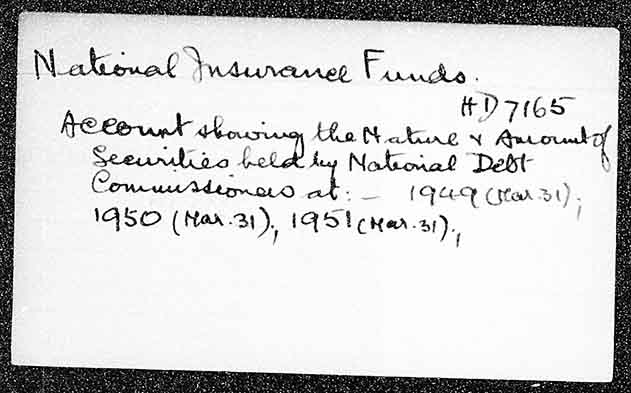 National Insurance Funds.
HD 7165
Account showing the Nature & Amount of
Securities held by National Debt
Commissioners at: – 1949 (Mar. 31);
1950 (Mar. 31); 1951 (Mar. 31);